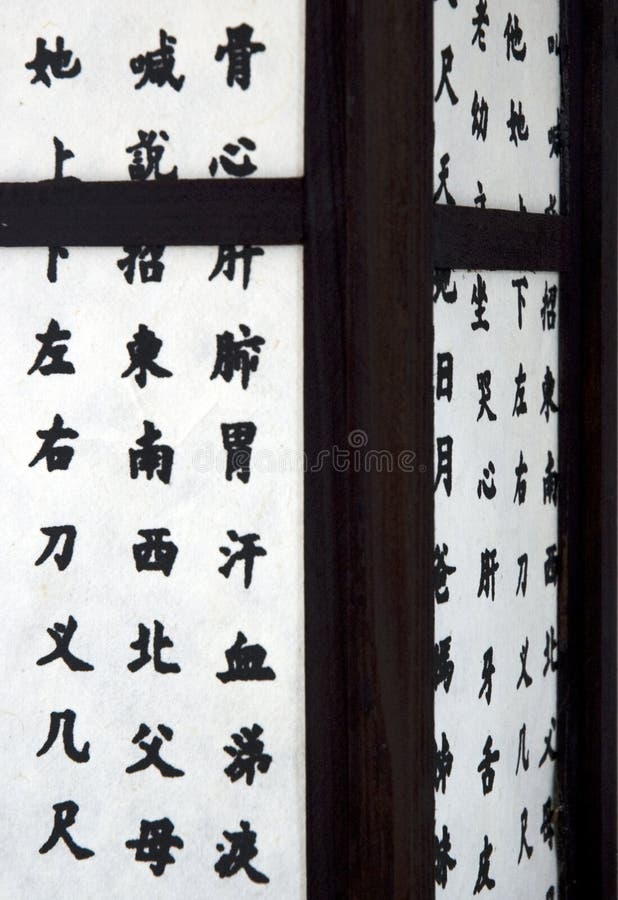 喊招東南西北父母
他她下左右刀义几尺
老幼立坐哭心肝牙舌皮
尺天見日月爸媽姊妹
骨心肝肺胃汗血涕涙
喊説招東南西北父母
她上下左右刀义几尺
dreamstime